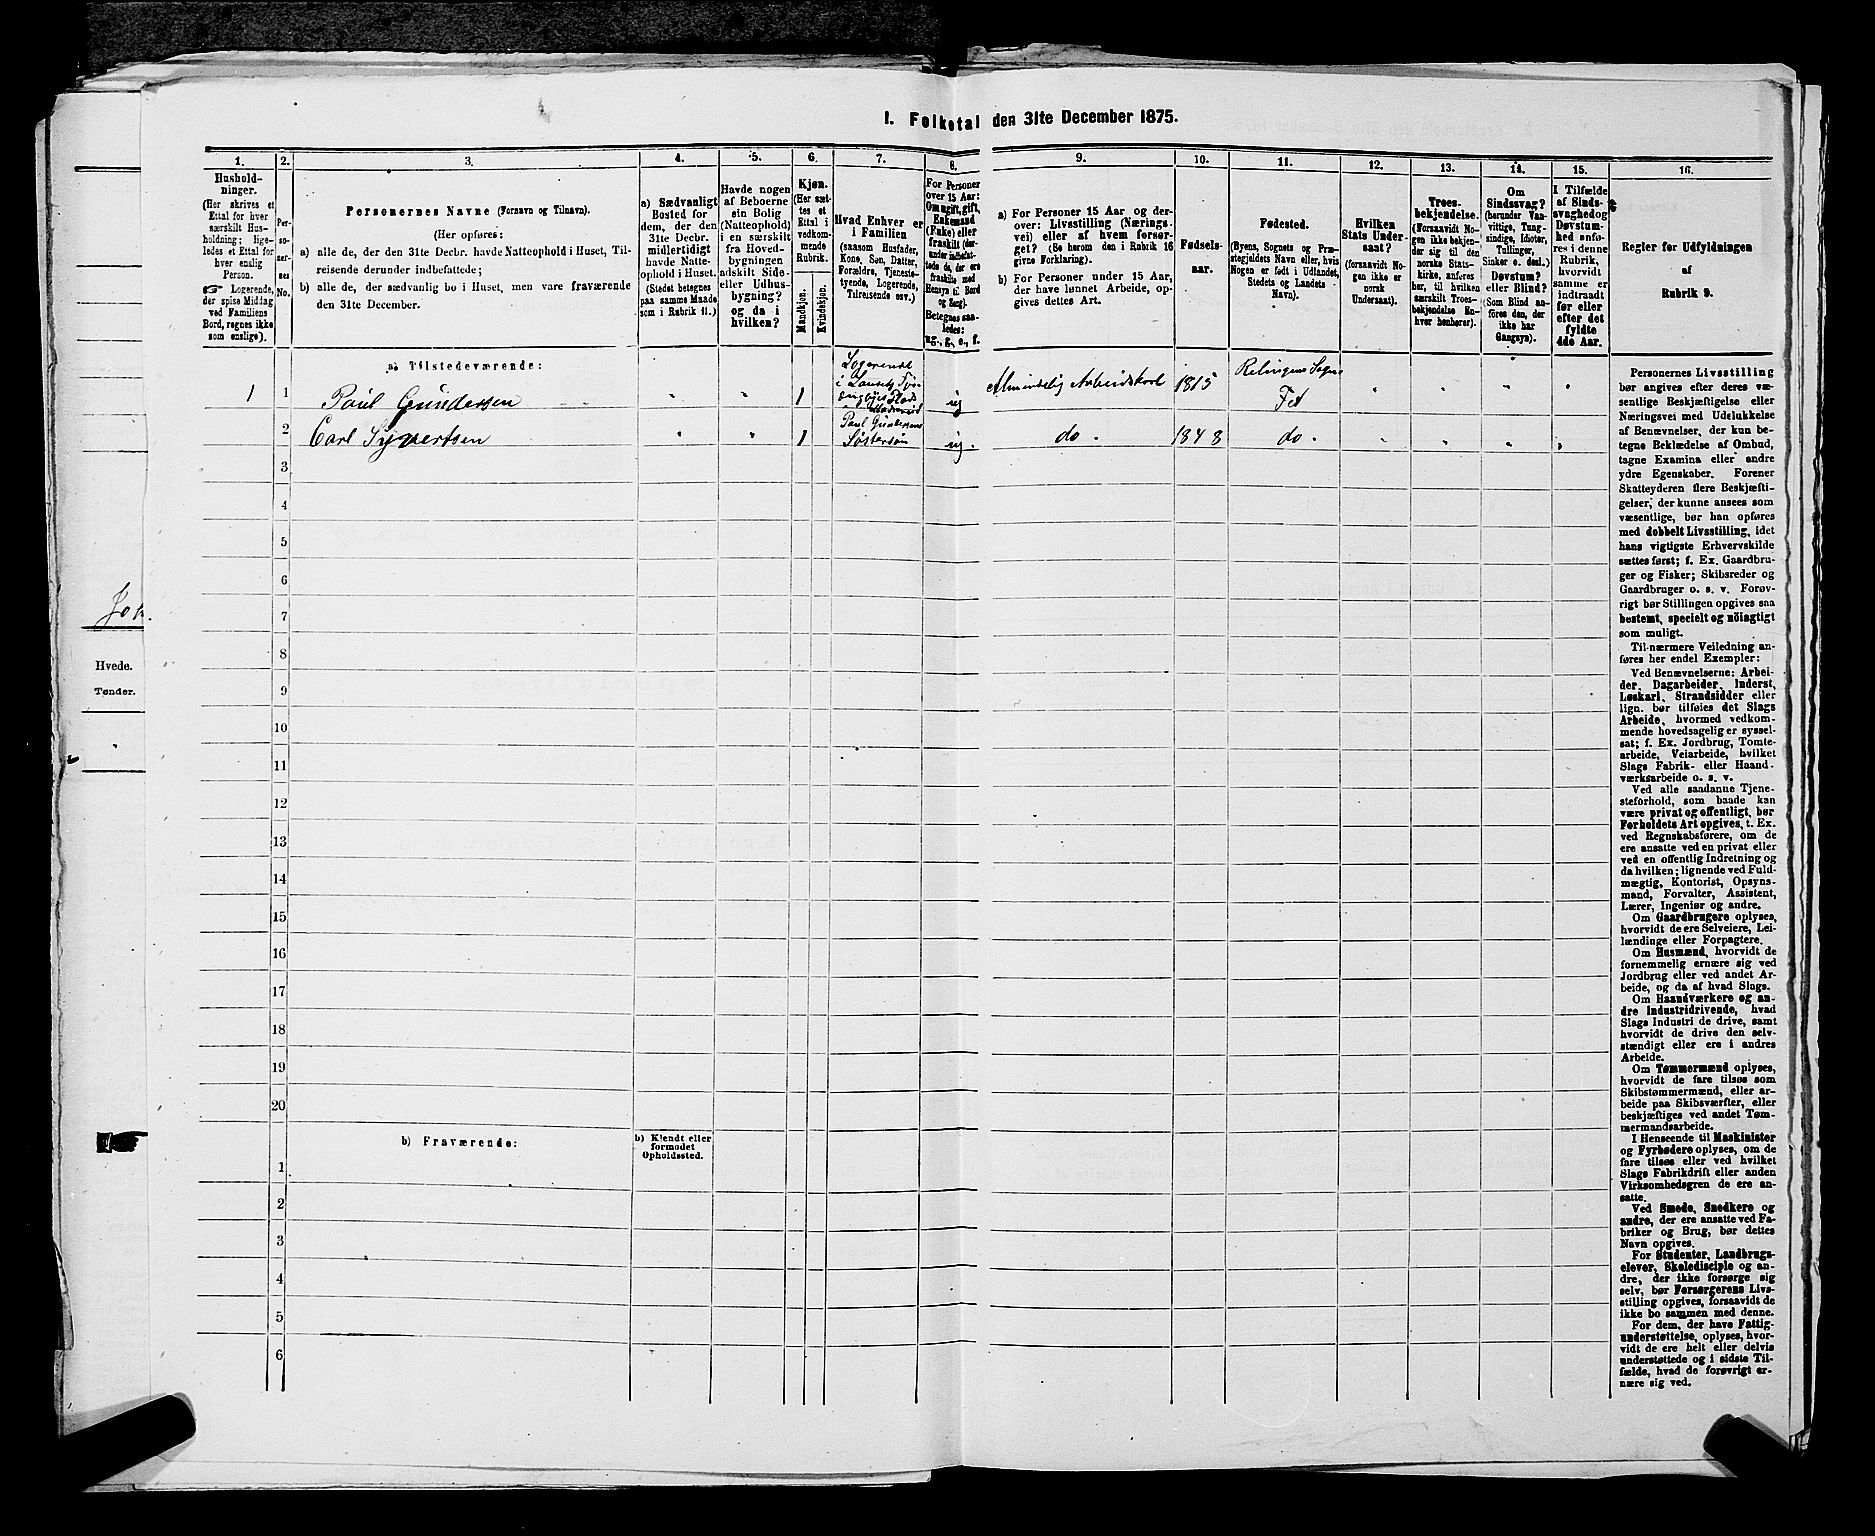 I. Folketal den 31te December 1875.
1.
Hushold-
ninger.
(Her skrives et
Ettal for hver
særskilt Hus-
holdning; lige-
ledes et Ettal for
hver enslig
Person.
☞ Logerende,
der spise Middag
ved Familiens
Bord, regnes ikke
som enslige).
2.
Per-
so-
ner-
nes
No.
3.
Personernes Navne (Fornavn og Tilnavn).
(Her opføres:
a) alle de, der den 31te Decbr. havde Natteophold i Huset, Til-
reisende derunder indbefattede;
b) alle de, der sædvanlig bo i Huset, men vare fraværende
den 31te December.
4.
a) Sædvanligt
Bosted for
dem, der den
31te Decbr.
midlertidigt
havde Natte-
ophold i Huset.
(Stedet betegnes
paa samme Maade
som i Rubrik 11.)
5.
Havde nogen
af Beboerne
sin Bolig
(Natteophold)
i en særskilt
fra Hoved-
bygningen
adskilt Side-
eller Udhus-
bygning?
og da i
hvilken?
6.
Kjøn.
(Her sæt-
tes et
Ettal i
vedkom-
mende
Rubrik.
Mandkjøn.
Kvindekjøn.
7.
Hvad Enhver er
i Familien
(saasom Husfader,
Kone, Søn, Datter,
Forældre, Tjeneste-
tyende, Logerende,
Tilreisende osv.)
8.
For Personer
over 15 Aar:
Om ugift, gift,
Enkemand
(Enke) eller
fraskilt (der-
under indbefat-
tede de, der ere
fraskilte med
Hensyn til Bord
og Seng).
Betegnes saa-
ledes:
ug., g., e., f.
9.
a) For Personer 15 Aar og der-
over: Livsstilling (Nærings-
vei) eller af hvem forsør-
get? (Se herom den i Rubrik 16
givne Forklaring).
b) For Personer under 15 Aar,
der have lønnet Arbeide, op-
gives dettes Art.
10.
Fødsels-
aar.
11.
Fødested.
(Byens, Sognets og Præ-
stegjeldets Navn eller, hvis
Nogen er født i Udlandet,
Stedets og Landets
Navn).
12.
Hvilken
Stats Under-
saat?
(forsaavidt No-
gen ikke er
norsk
Undersaat).
13.
Troes-
bekjendelse.
(Forsaavidt No-
gen ikke bekjen-
der sig til den
norske Stats-
kirke, anføres
her, til hvilken
særskilt Troes-
bekjendelse En-
hver henhører).
14.
Om
Sindssvag?
(herunder Van-
vittige, Tung-
sindige, Idioter,
Tullinger,
Sinker o. desl.)
Døvstum?
eller Blind?
(Som Blind an-
føres den, der
ikke har
Gangsyn).
15.
I Tilfælde
af Sinds-
svaghed og
Døvstum-
hed anfø-
res i denne
Rubrik,
hvorvidt
samme er
indtraadt
før eller
efter det
fyldte
4de Aar.
16.
Regler for Udfyldningen
af
Rubrik 9.
a) Tilstedeværende:
1 1 Paul Gundersen " " 1 Logerende i ug Almindelig Arbeidskarl 1815 Relingens Sogn Fet " " " "
2 Carl Sypertsen " " 1 Paul Gundersens Søstersøn ug. do. 1848 do. " " " "
3
4
5
6
7
8
9
10
11
12
13
14
15
16
17
18
19
20
b) Fraværende:
b) Kjendt eller
formodet
Opholdssted.
1
2
3
4
5
6
Personernes Livsstilling
bør angives efter deres væ-
sentlige Beskjæftigelse eller
Næringsvei med Udelukkelse
af Benævnelser, der kun be-
tegne Beklædelse af Ombud,
tagne Examina eller andre
ydre Egenskaber. Forener
Skatteyderen flere Beskjæfti-
gelser, der kunne ansees som
væsentlige, bør han opføres
med dobbelt Livsstilling, idet
hans vigtigste Erhvervskilde
sættes først; f. Ex. Gaardbru-
ger og Fisker; Skibsreder og
Gaardbruger o. s. v. Forøv-
rigt bør Stillingen opgives saa
bestemt, specielt og nöiagtigt
som muligt.
Til nærmere Veiledning an-
føres her endel Exempler:
Ved Benævnelserne: Arbei-
der, Dagarbeider, Inderst,
Løskarl, Strandsidder eller
lign. bør tilføies det Slags
Arbeide, hvormed vedkom-
mende hovedsagelig er syssel-
sat; f. Ex. Jordbrug, Tomte-
arbeide, Veiarbeide, hvilket
Slags Fabrik- eller Haand-
værksarbeide o. s. v.
Ved alle saadanne Tjene-
steforhold, som baade kan
være privat og offentligt, bør
Forholdets Art opgives, t. Ex.
ved Regnskabsførere, om de
ere ansatte ved en privat eller
ved en offentlig Indretning og
da hvilken; lignende ved Fuld-
mægtig, Kontorist, Opsyns-
mand, Forvalter, Assistent,
Lærer, Ingeniør og andre.
Om Gaardbrugere oplyses,
hvorvidt de ere Selveiere, Lei-
lændinge eller Forpagtere.
Om Husmænd, hvorvidt de
fornemmelig ernære sig ved
Jordbrug eller ved andet Ar-
beide, og da af hvad Slags.
Om Haandværkere og an-
dre Industridrivende, hvad
Slags Industri de drive, samt
hvorvidt de drive den selv-
stændigt eller ere i andres
Arbeide.
Om Tømmermænd oplyses,
hvorvidt de fare tilsøs som
Skibstømmermænd, eller ar-
beide paa Skibsværfter, eller
beskjæftiges ved andet Tøm-
mermandsarbeide.
I Henseende til Maskinister
og Fyrbødere oplyses, om de
fare tilsøs eller ved hvilket
Slags Fabrikdrift eller anden
Virksomhedsgren de ere an-
satte.
Ved Smede, Snedkere og
andre, der ere ansatte ved Fa-
briker og Brug, bør dettes
Navn opgives.
For Studenter, Landbrugs-
elever, Skoledisciple og an-
dre, der ikke forsørge sig
selv, bør Forsørgerens Livs-
stilling opgives, forsaavidt de
ikke bo sammen med denne.
For dem, der have Fattig-
understøttelse, oplyses, hvor-
vidt de ere helt eller delvis
understøttede og i sidste Til-
fælde, hvad de forøvrigt er-
nære sig ved.
Hvede.
Tønder.